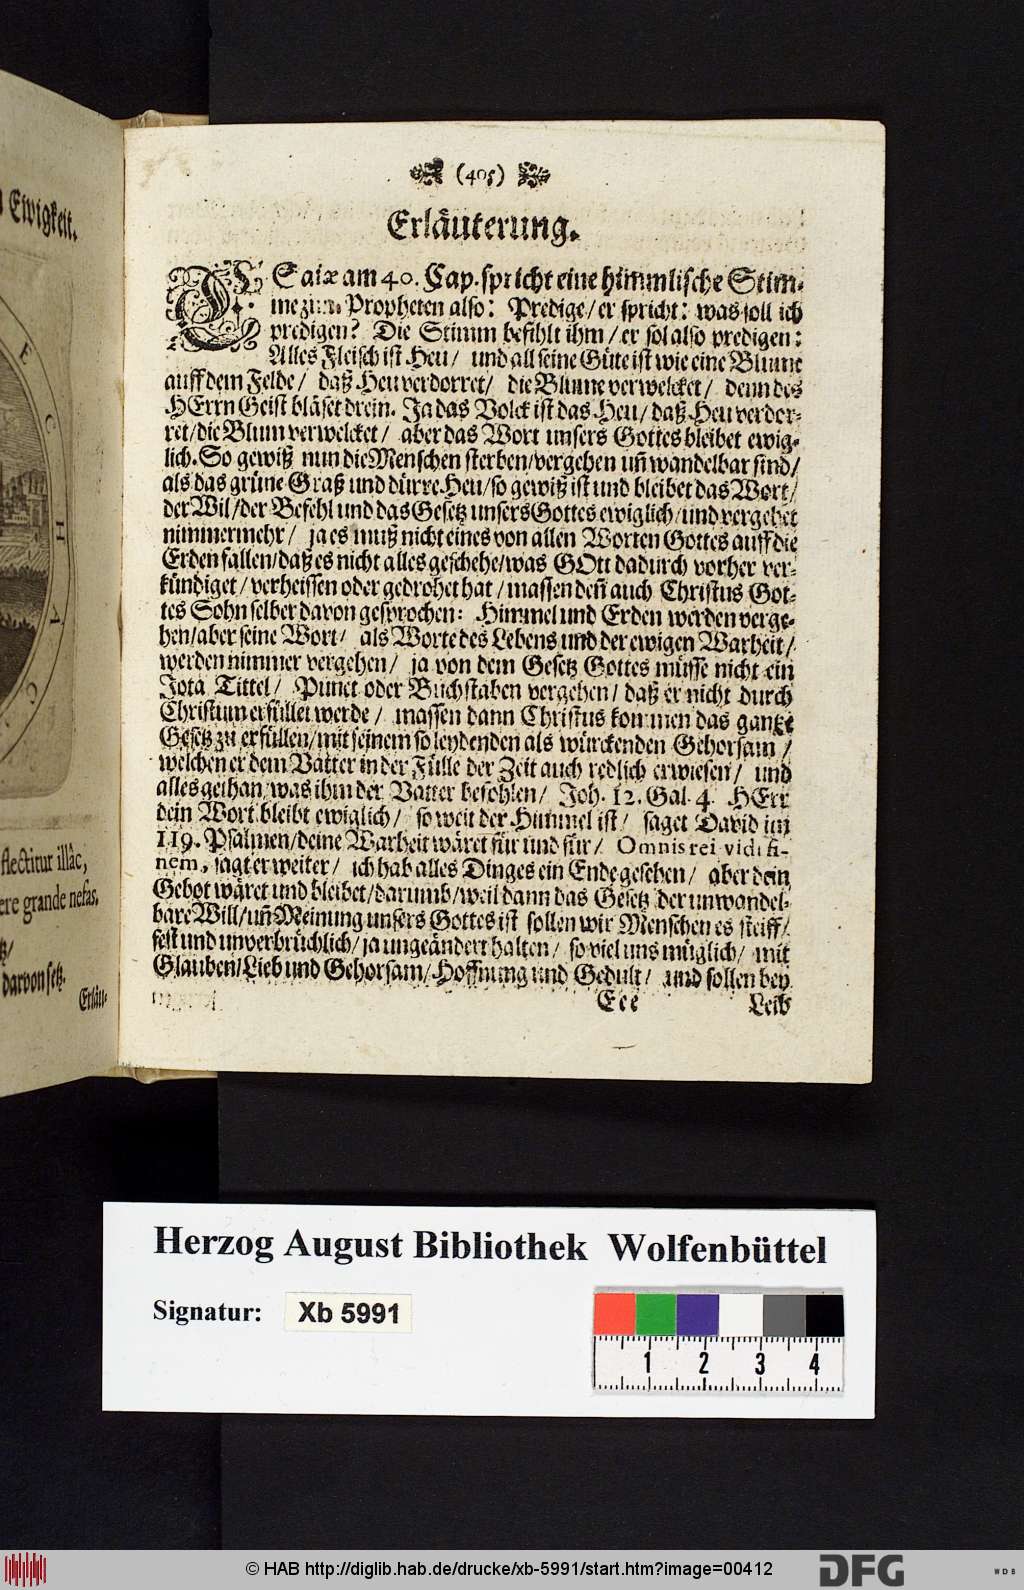 n Ewigkeit.
E
C
H
A
C
flectitur illâc,
ere grande nefas.
tz/
darvon setz.
Erläu-
(405)
Erläuterung.
ESaiæ am 40. Cap. spricht eine himmlische Stim-
me zum Propheten also: Predige/ er spricht: was soll ich
predigen? Die Stimm befihlt ihm/ er sol also predigen:
Alles Fleisch ist Heu/ und all seine Güte ist wie eine Blume
auff dem Felde/ daß Heu verdorret/ die Blume verwelcket/ denn des
HErrn Geist bläset drein. Ja das Volck ist das Heu/ daß Heu verdor-
ret/ die Blum verwelcket/ aber das Wort unsers Gottes bleibet ewig-
lich. So gewiß nun die Menschen sterben/ vergehen uñ wandelbar sind/
als das grüne Graß und dürre Heu/ so gewiß ist und bleibet das Wort/
der Wil/ der Befehl und das Gesetz unsers Gottes ewiglich/ und vergehet
nimmermehr/ ja es muß nicht eines von allen Worten Gottes auff die
Erden fallen/ daß es nicht alles geschehe/ was GOtt dadurch vorher ver-
kündiget/ verheissen oder gedrohet hat/ massen deñ auch Christus Got-
tes Sohn selber davon gesprochen: Himmel und Erden werden verge-
hen/ aber seine Wort/ als Worte des Lebens und der ewigen Warheit/
werden nimmer vergehen/ ja von dem Gesetz Gottes müsse nicht ein
Jota Tittel/ Punct oder Buchstaben vergehen/ daß er nicht durch
Christum erfüllet werde/ massen dann Christus kommen das gantze
Gesetz zu erfüllen/ mit seinem so leydenden als würckenden Gehorsam/
welchen er dem Vatter in der Fülle der Zeit auch redlich erwiesen/ und
alles gethan/ was ihm der Vatter befohlen/ Joh. 12. Gal. 4. HErr
dein Wort bleibt ewiglich/ so weit der Himmel ist/ saget David im
119. Psalmen/ deine Warheit wäret für und für/ Omnis rei vidi fi-
nem, sagt er weiter/ ich hab alles Dinges ein Ende gesehen/ aber dein
Gebot wäret und bleibet/ darumb/ weil dann das Gesetz der unwandel-
bare Will/ uñ Meinung unsers Gottes ist sollen wir Menschen es steiff/
fest und unverbrüchlich/ ja ungeändert halten/ so viel uns müglich/ mit
Glauben/ Lieb und Gehorsam/ Hoffnung und Gedult/ und sollen bey
Eee Leib
Herzog August Bibliothek Wolfenbüttel
Signatur: Xb 5991
1 2 3 4
© HAB http://diglib.hab.de/drucke/xb-5991/start.htm?image=00412
DFG
WDB